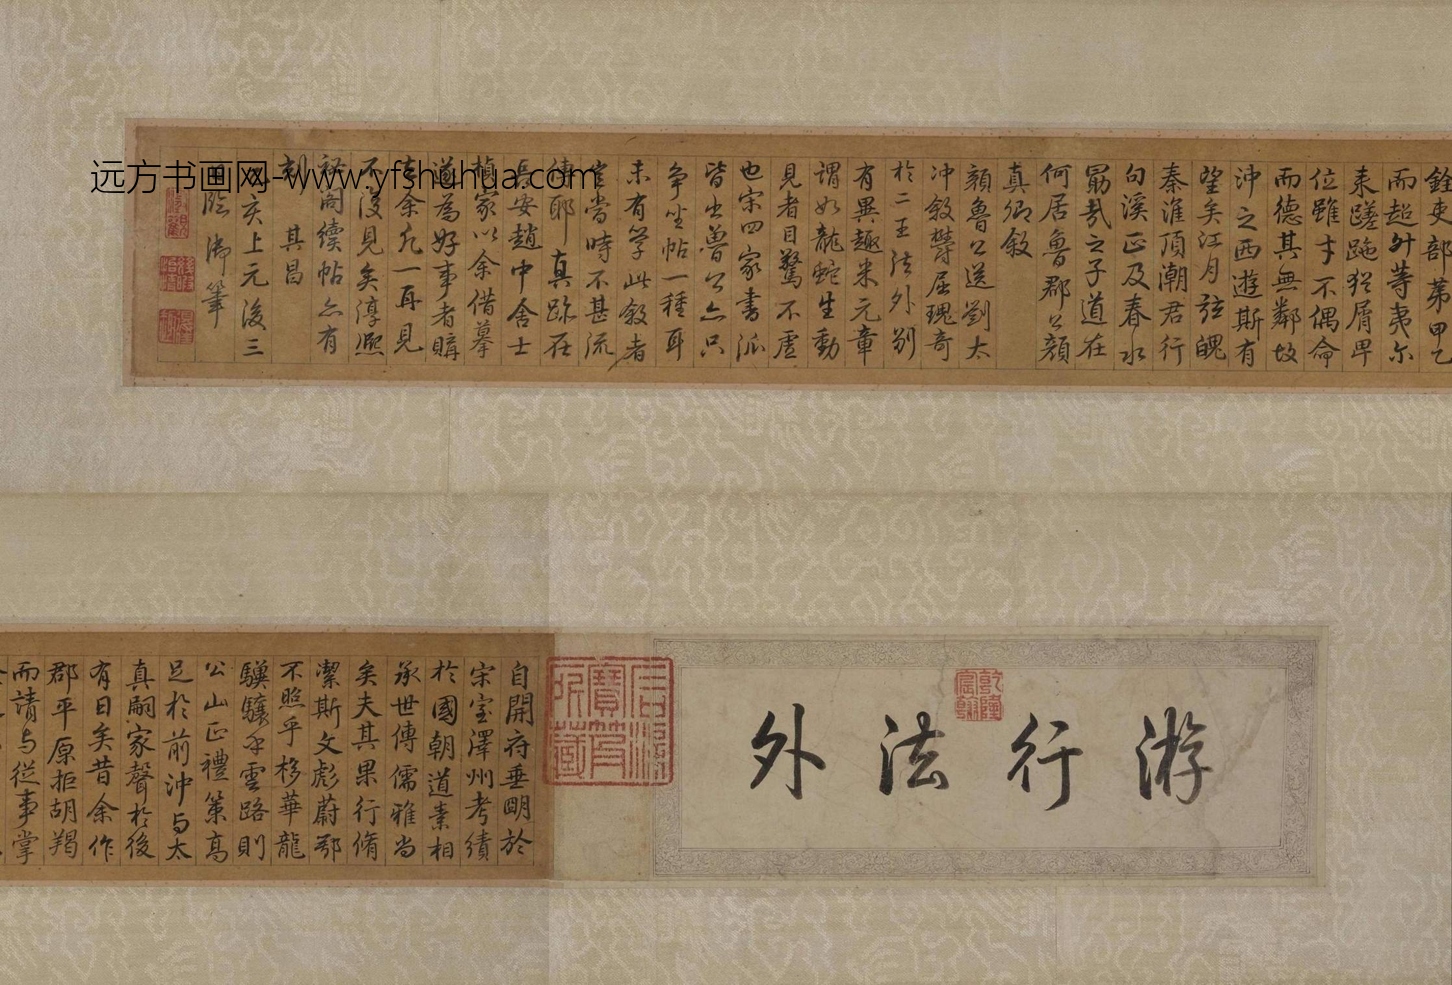 远方书画网-www.yfshuhua.com
銓吏部第甲乙
而超升等夷尒
来蹉跎猶屑卑
位雖才不偶命
而德其無鄰故
沖之西遊斯有
望矣江月弦魄
秦淮頂潮君行
句溪正及春水
勗哉之子道在
何居魯郡公顏
真卿敘
顏魯公送劉太
冲敘欝屈瑰奇
於二王法外別
有異趣米元章
謂如龍蛇生動
見者目驚不虛
也宋四家書派
皆出魯公亦只
争坐帖一種耳
未有学此敘者
豈當時不甚流
傳耶真跡在
長安趙中舍士
楨家以余借摹
遂為好事者購
去余凢一再見
不復見矣淳熈
秘閣續帖亦有
刻 其昌
乙亥上元後三
日臨 御筆
游行法外
乾隆宸翰
石渠寶笈所藏
自開府垂眀於
宋室澤州考績
於國朝道素相
承世傳儒雅尚
矣夫其果行脩
潔斯文彪蔚鄂
不照乎移華龍
驥驤乎雲路則
公山正禮策高
足於前沖与太
真嗣家聲於後
有日矣昔余作
郡平原拒胡羯
而請与從事掌